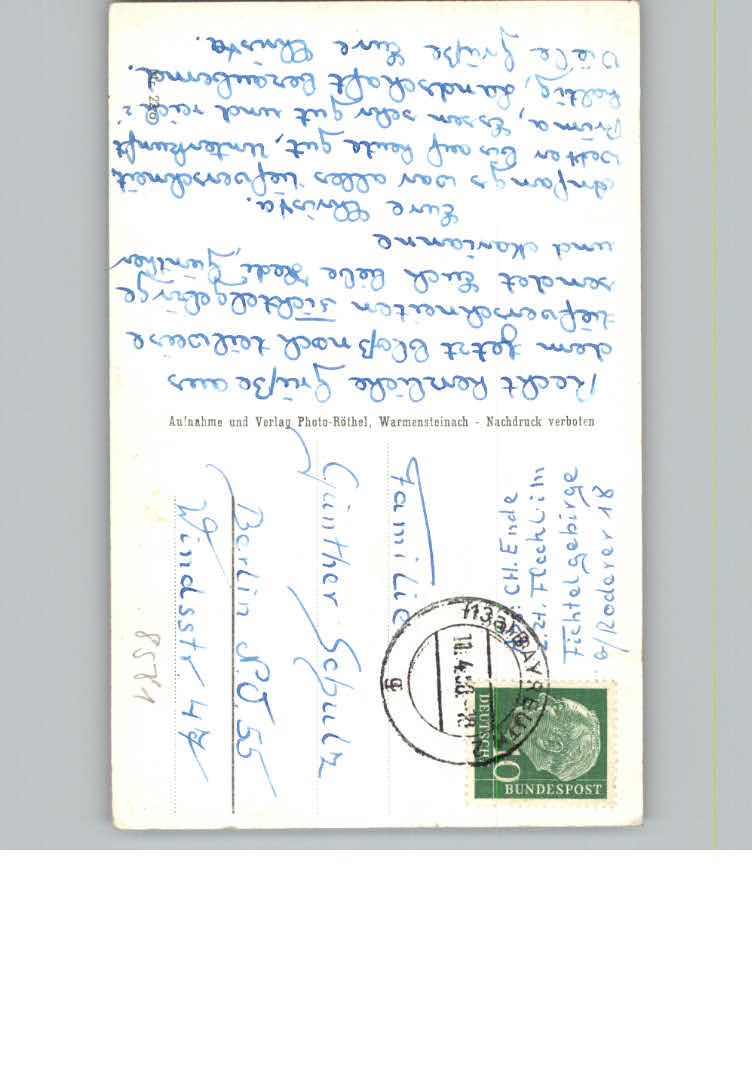 Recht herzliche Grüße aus
dem jetzt bloß noch teilweise
tiefverschneiten Fichtelgebirge
sendet Euch liebe Hedi, Günther
und Marianne
Eure Christa.
Anfangs war alles tiefverschneit,
Wetter bis auf heute gut, Unterkunft
prima, Essen sehr gut und reich-
haltig, Landschaft bezaubernd.
Viele Grüße Eure Christa.
Aufnahme und Verlag Photo-Röthel, Warmensteinach - Nachdruck verboten
CH. Ende
z. Zt.
Fichtelgebirge
b/Roderer 18
Familie
Günther Schulz
Berlin N.O. 55
Winsstr 47
8581
DEUTSCHE
BUNDESPOST
10
(13a) BAYREUTH